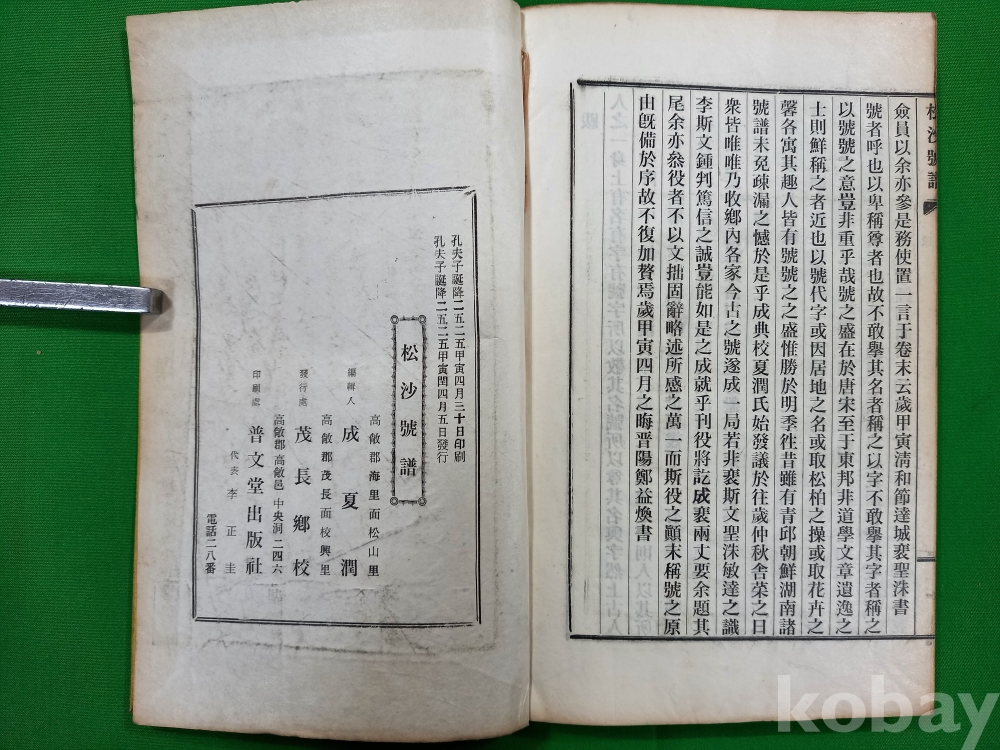 松沙號譜
僉員以余亦參是務使置一言于卷末云歲甲寅淸和節達城裵聖洙書
號者呼也以卑稱尊者也故不敢擧其名者稱之以字不敢擧其字者稱之
以號號之意豈非重乎哉號之盛在於唐宋至于東邦非道學文章遺逸之
士則鮮稱之者近也以號代字或因居地之名或取松柏之操或取花卉之
馨各寓其趣人皆有號號之之盛惟勝於明季徃昔雖有靑邱朝鮮湖南諸
號譜未免疎漏之憾於是乎成典校夏潤氏始發議於往歲仲秋舍菜之日
衆皆唯唯乃收鄕內各家今古之號遂成一局若非裵斯文聖洙敏達之識
李斯文鍾判篤信之誠豈能如是之成就乎刊役將訖成裵兩丈要余題其
尾余亦叅役者不以文拙固辭略述所感之萬一而斯役之顚末稱號之原
由旣備於序故不復加贅焉歲甲寅四月之晦晋陽鄭益煥書
孔夫子誕降二五二五甲寅四月三十日印刷
孔夫子誕降二五二五甲寅閏四月五日發行
松沙號譜
高敞郡海里面松山里
編輯人 成夏潤
高敞郡茂長面校興里
發行處 茂長鄕校
高敞郡高敞邑中央洞二四六
印刷處 普文堂出版社
代表 李正圭
電話二八番
kobay